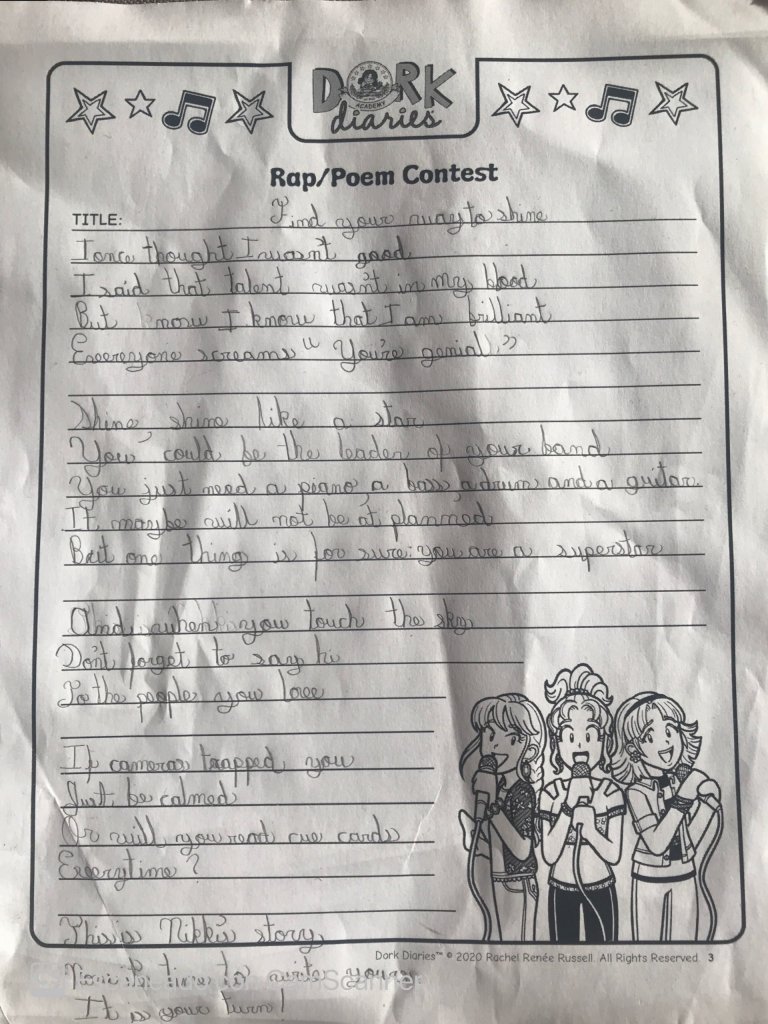 DORK
ACADEMY
diaries
Rap/Poem Contest
TITLE: Find your way to shine
I once thought I wasn't good
I said that talent wasn't in my blood
But now I know that I am brilliant
Everyone screams "You're genial."
Shine, shine like a star
You could be the leader of your band
You just need a piano, a bass, a drum and a guitar
It maybe will not be at planned
But one thing is for sure: you are a superstar
And when you touch the sky
Don't forget to say hi
To the people you love
If cameras trapped you
Just be calmed
Or will you read cue cards
Everytime?
This is Nikki's story
Dork Diaries™ © 2020 Rachel Renée Russell. All Rights Reserved. 3
Now it's time to write yours
Scanner
It is your turn!